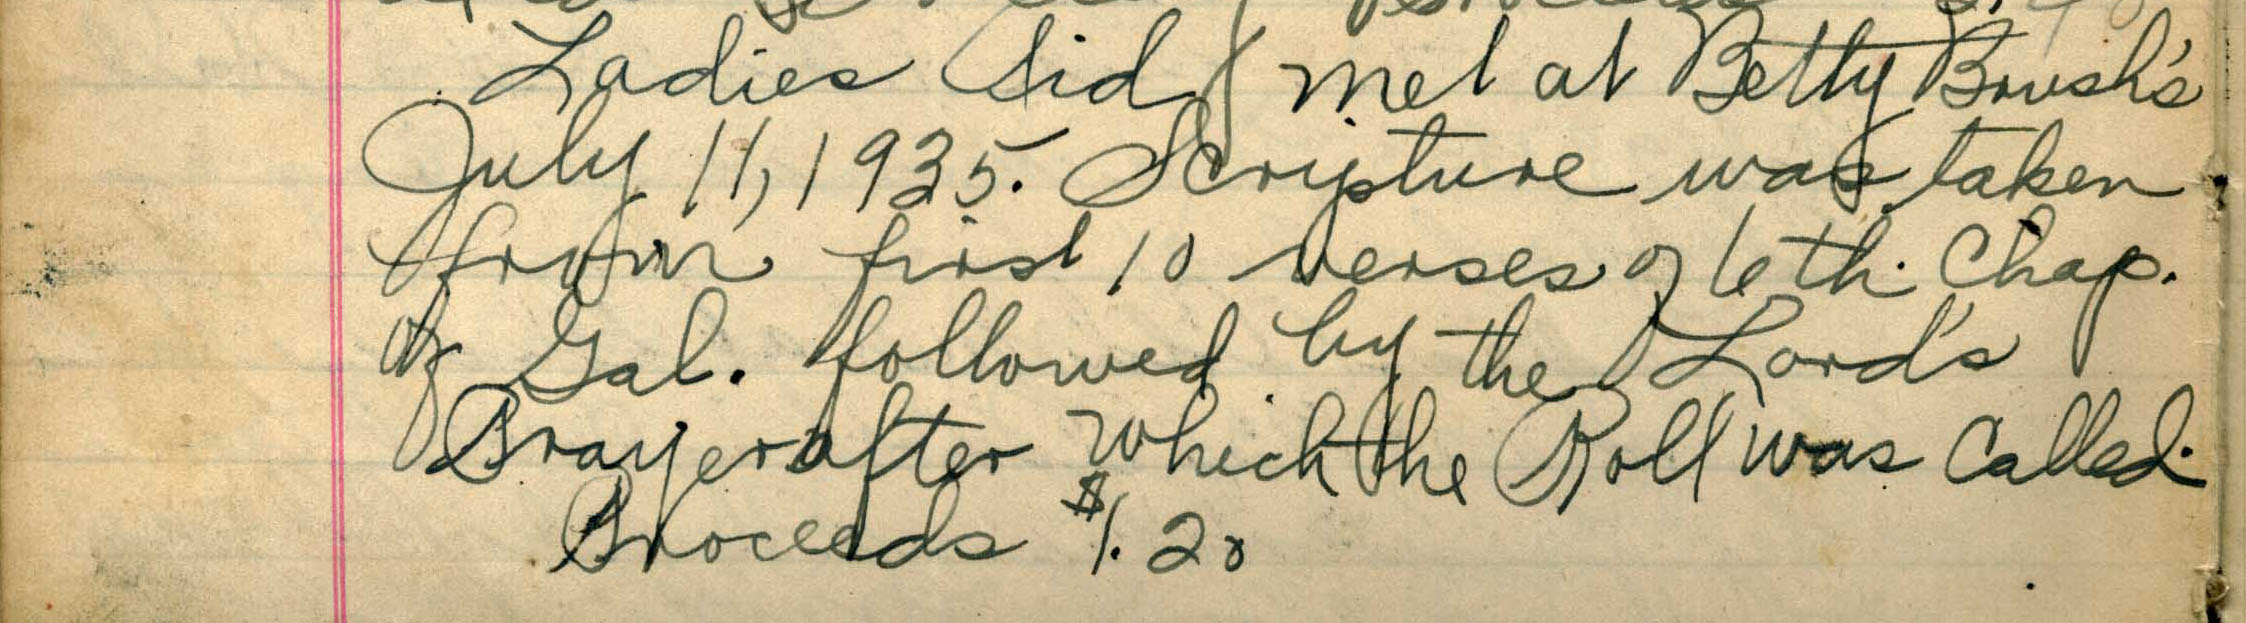 Ladies Aid met at Betty Brush's
July 11, 1935. Scripture was taken
from first 10 verses of 6th. Chap.
of Gal. followed by the Lord's
Prayer after which the Roll was Called.
Proceeds $1.20